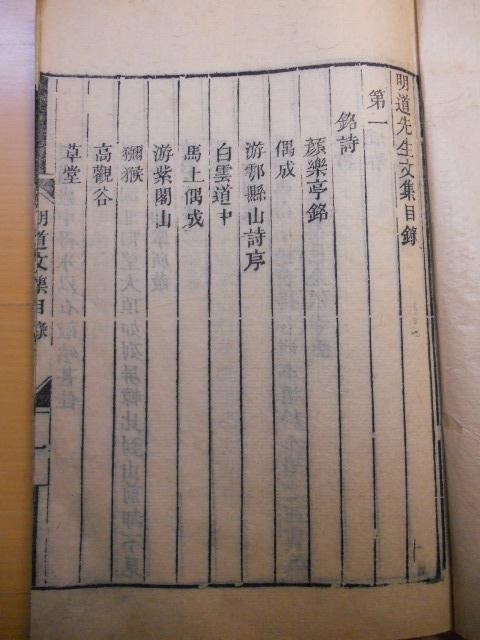 明道先生文集目錄
第一
銘詩
顏樂亭銘
偶成
游鄠縣山詩序
白雲道中
馬上偶成
游紫閣山
獼猴
高觀谷
草堂
明道文集目錄
一